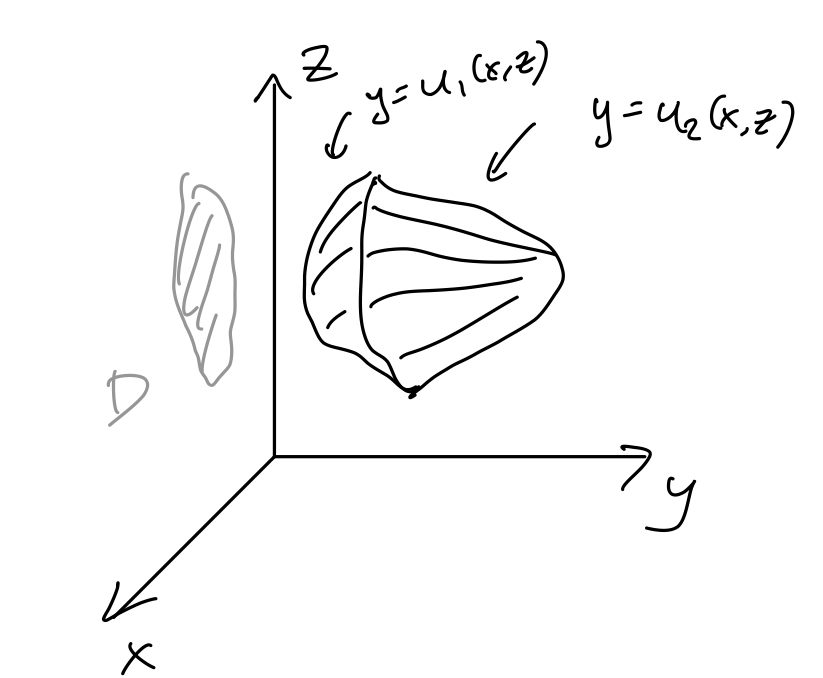 z
y = u₁(x,z)
y = u₂(x,z)
D
y
x